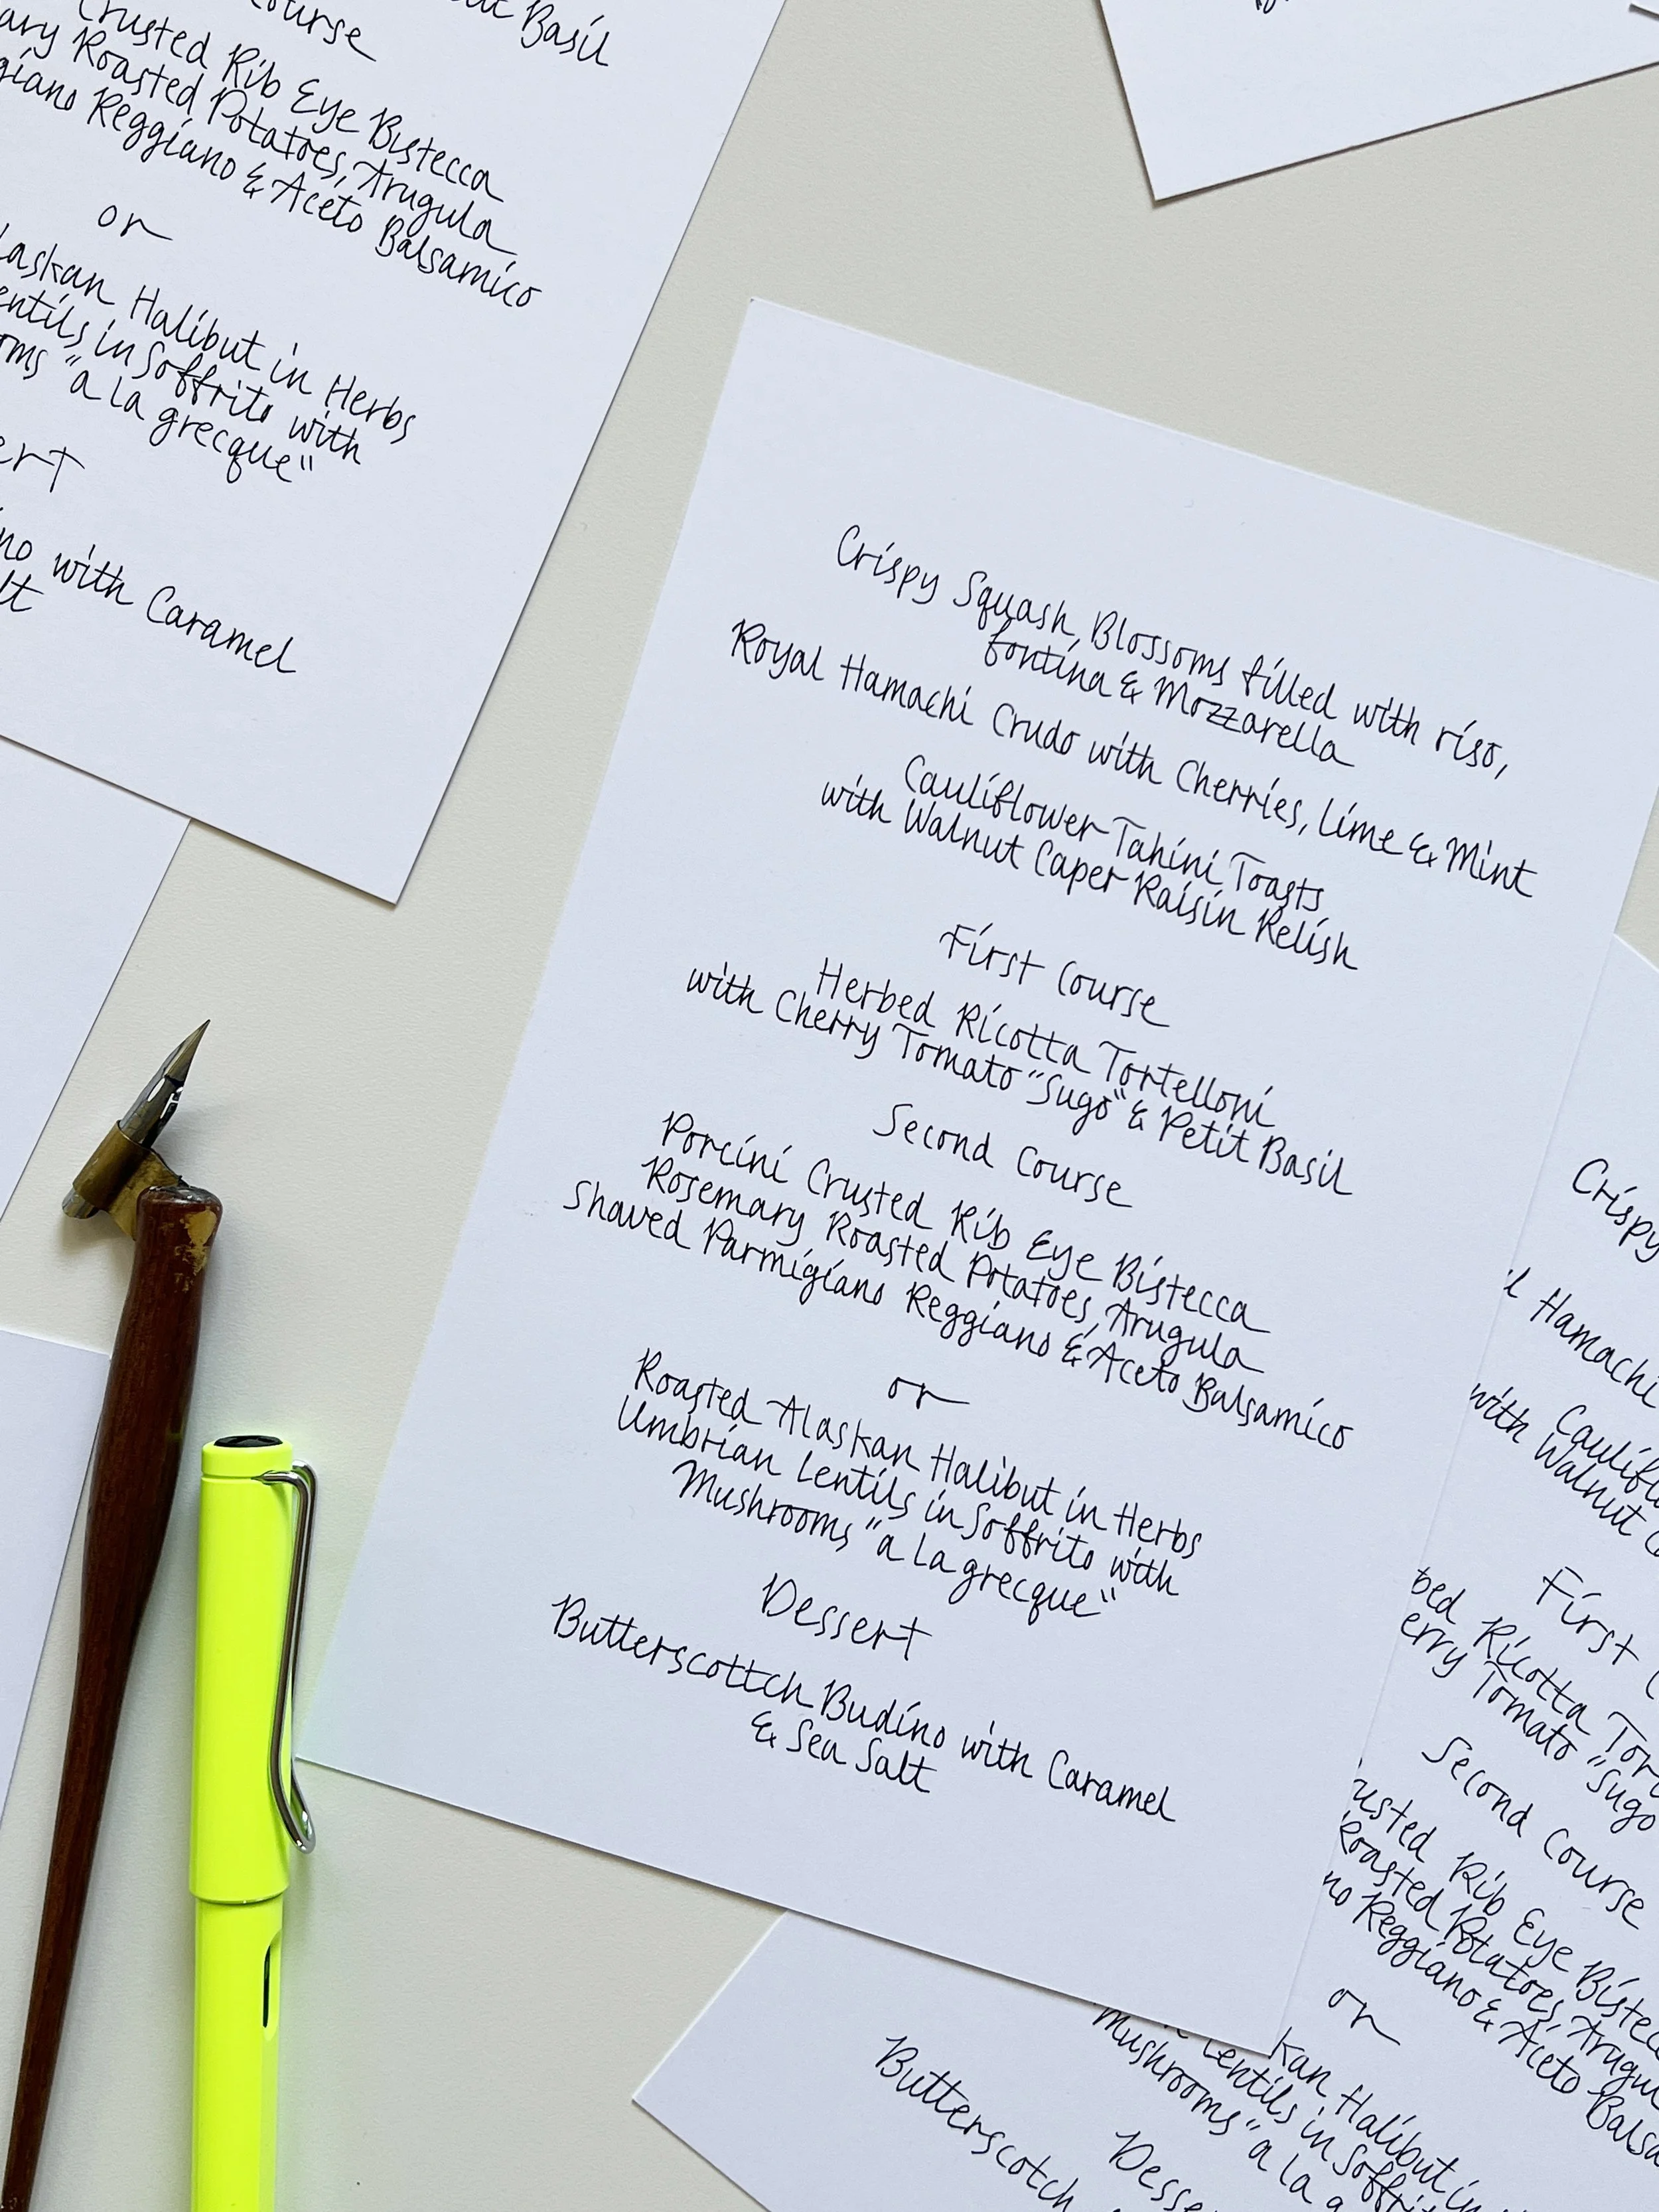 Basil
Course
Crusted Rib Eye Bistecca
Roasted Potatoes, Arugula
Reggiano & Aceto Balsamico
or
laskan Halibut in Herbs
entils in Soffrito with
oms "a la grecque"
ert
no with Caramel
lt
Crispy Squash Blossoms filled with riso,
fontina & Mozzarella
Royal Hamachi Crudo with Cherries, Lime & Mint
Cauliflower Tahini Toasts
with Walnut Caper Raisin Relish
First Course
Herbed Ricotta Tortelloni
with Cherry Tomato "Sugo" & Petit Basil
Second Course
Porcini Crusted Rib Eye Bistecca
Rosemary Roasted Potatoes, Arugula
Shaved Parmigiano Reggiano & Aceto Balsamico
or
Roasted Alaskan Halibut in Herbs
Umbrian Lentils in Soffrito with
Mushrooms "a la grecque"
Dessert
Butterscottch Budino with Caramel
& Sea Salt
Crispy
l Hamachi
Caulifl
with Walnut
First
bed Ricotta Tor
erry Tomato "Sugo
Second Course
rusted Rib Eye Biste
Roasted Potatoes, Arugu
no Reggiano & Aceto Balsa
or
kan Halibut in
Lentils in Soffrit
Mushrooms "a la g
Desse
Butterscotch